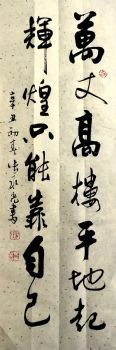 萬丈高樓平地起
輝煌只能靠自己
辛丑初夏